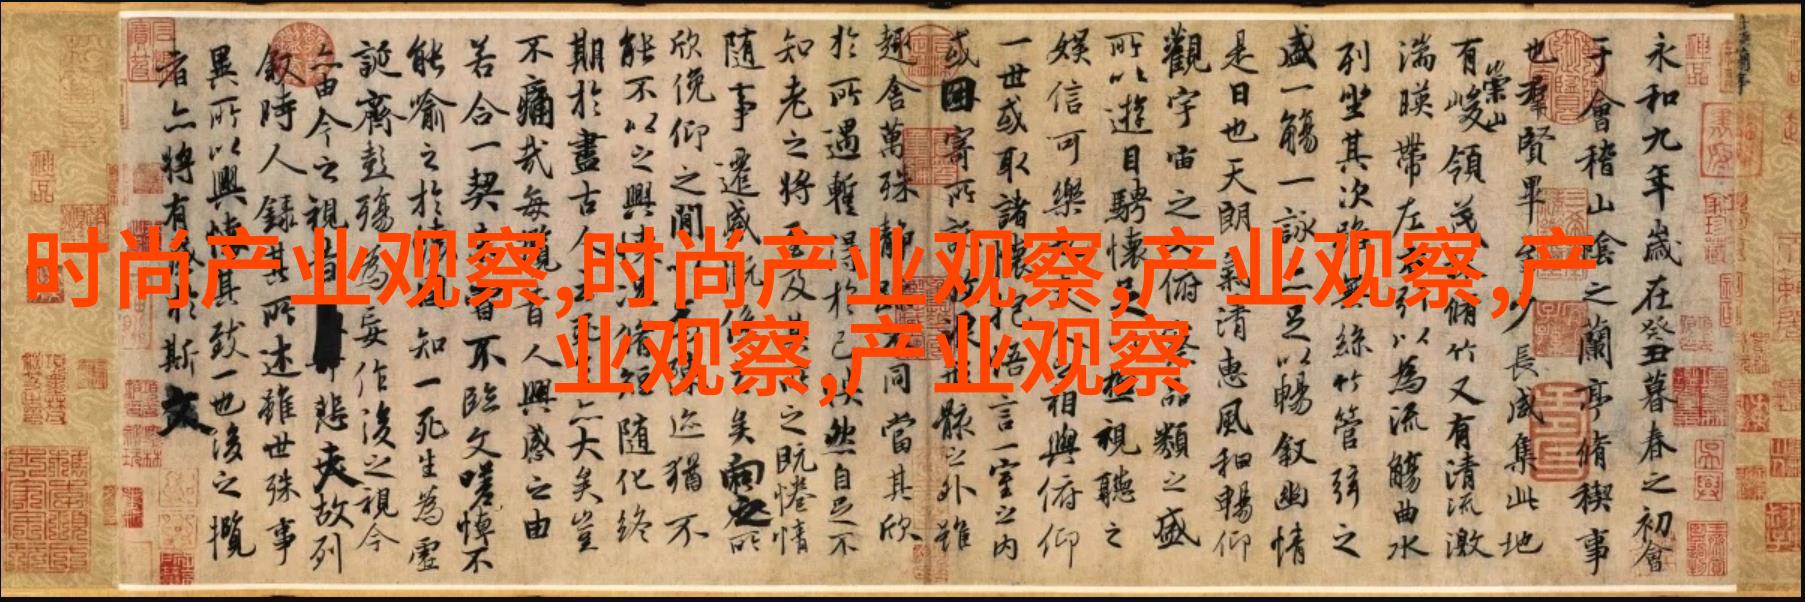 永和九年歲在癸丑暮春之初會
于會稽山陰之蘭亭脩稧事
也羣賢畢至少長咸集此地
有崇山峻領茂林脩竹又有清流激
湍暎帶左右引以為流觴曲水
列坐其次雖無絲竹管弦之
盛一觴一詠亦足以暢敘幽情
是日也天朗氣清惠風和暢仰
觀宇宙之大俯察品類之盛
所以遊目騁懷足以極視聽之
娛信可樂也夫人之相與俯仰
一世或取諸懷抱悟言一室之內
或因寄所託放浪形骸之外雖
趣舍萬殊靜躁不同當其欣
於所遇蹔得於己怏然自足不
知老之將至及其所之既惓情
隨事遷感慨係之矣向之所
欣俛仰之閒以為陳迹猶不
能不以之興懷況脩短隨化終
期於盡古人云死生亦大矣豈
不痛哉每攬昔人興感之由
若合一契未嘗不臨文嗟悼不
能喻之於懷固知一死生為虛
誕齊彭殤為妄作後之視今
亦由今之視昔悲夫故列
敘時人錄其所述雖世殊事
異所以興懷其致一也後之攬
者亦將有感於斯文
时尚产业观察,时尚产业观察,产业观察,产
业观察,产业观察